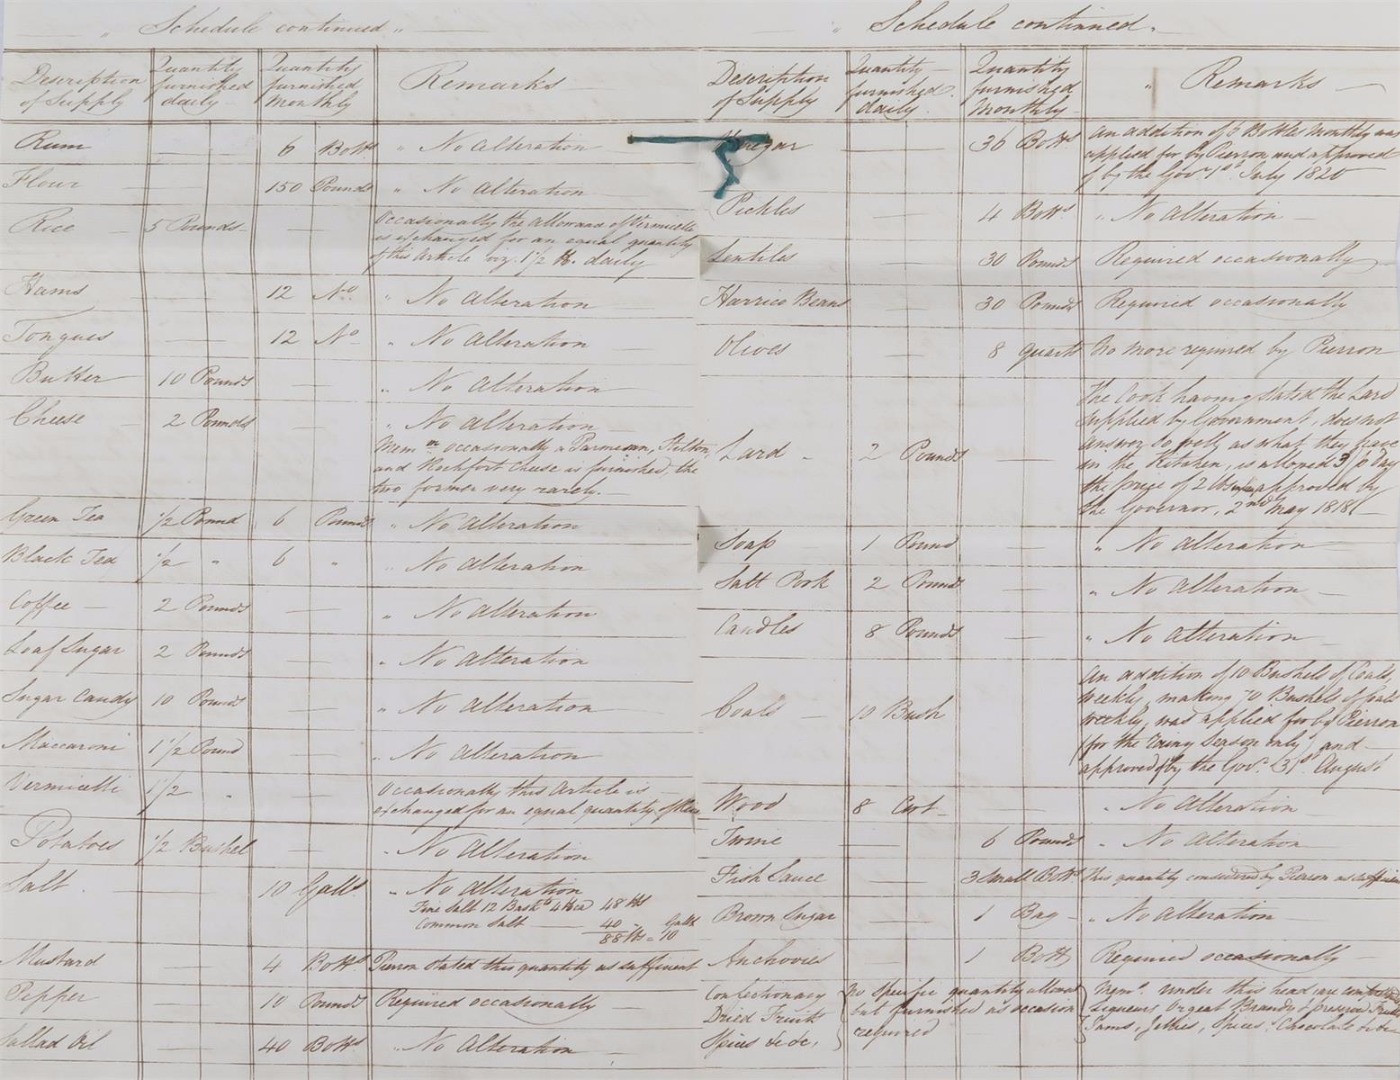 Schedule continued
Description of Supply | Quantity furnished daily | Quantity furnished Monthly | Remarks
Rum — 6 Botts " No Alteration
Flour — 150 Pounds " No Alteration
Rice 5 Pounds — Occasionally the allowance of Vermicelli
is exchanged for an equal quantity
of this Article viz. 1 1/2 lb. daily
Hams — 12 No. " No Alteration
Tongues — 12 No " No Alteration
Butter 10 Pounds — " No Alteration
Cheese 2 Pounds " No Alteration
Mem.m occasionally a Parmesan, Stilton,
and Rochfort Cheese is furnished, the
two former very rarely.
Green Tea 1/2 Pound 6 Pounds " No Alteration
Black Tea 1/2 " 6 " " No Alteration
Coffee — 2 Pounds — " No Alteration
Loaf Sugar 2 Pounds — " No Alteration
Sugar Candy 10 Pounds — " No Alteration
Maccaroni 1 1/2 Pound — " No Alteration
Vermicelli 1 1/2 " — Occasionally this Article is
exchanged for an equal quantity of Rice
Potatoes 1/2 Bushel — " No Alteration
Salt — 10 Galls " No Alteration
Fine Salt 12 Bask.ts 4 lb ea 48 lbs
Common Salt — 40 " Galls
88 lbs = 10
Mustard — 4 Botts Pierron stated this quantity as sufficient
Pepper — 10 Pounds Required occasionally
Sallad Oil — 40 Botts " No Alteration
Schedule continued.
Description of Supply | Quantity furnished daily | Quantity furnished Monthly | " Remarks
Vinegar — 36 Botts an addition of 6 Bottles Monthly was
applied for by Pierron and approved
of by the Gov.r 1st July 1820
Pickles — 4 Botts " No Alteration
Lentiles — 30 Pounds Required occasionally
Harrico Beans — 30 Pounds Required occasionally
Olives — 8 quarts No more required by Pierron
Lard 2 Pounds — The Cook having stated the Lard
supplied by Government, does not
answer so well as what they
in the Kitchen, is allowed 3/ P day
the price of 2 lbs approved by
the Governor, 2nd May 1818
Soap 1 Pound — " No Alteration
Salt Pork 2 Pounds — " No Alteration
Candles 8 Pounds — " No Alteration
Coals — 10 Bush — An addition of 10 Bushels of Coals,
weekly, making 70 Bushels of Coals
weekly, was applied for by Pierron
(for the rainy Season only) and
approved by the Gov.r 31st August
Wood 8 Cwt — " No Alteration
Twine — 6 Pounds " No Alteration
Fish Sauce — 3 Small Botts this quantity considered by Pierron as sufficient
Brown Sugar — 1 Bag " No Alteration
Anchovies — 1 Bott Required occasionally
Confectionary
Dried Fruits
Spices &c &c,
No specific quantity allowed
but furnished as occasion
required
Mem.o under this head are comprised
Liqueurs, Orgeat, Brandy preserved Fruits
Jams, Jellies, Spices, Chocolate &c &c